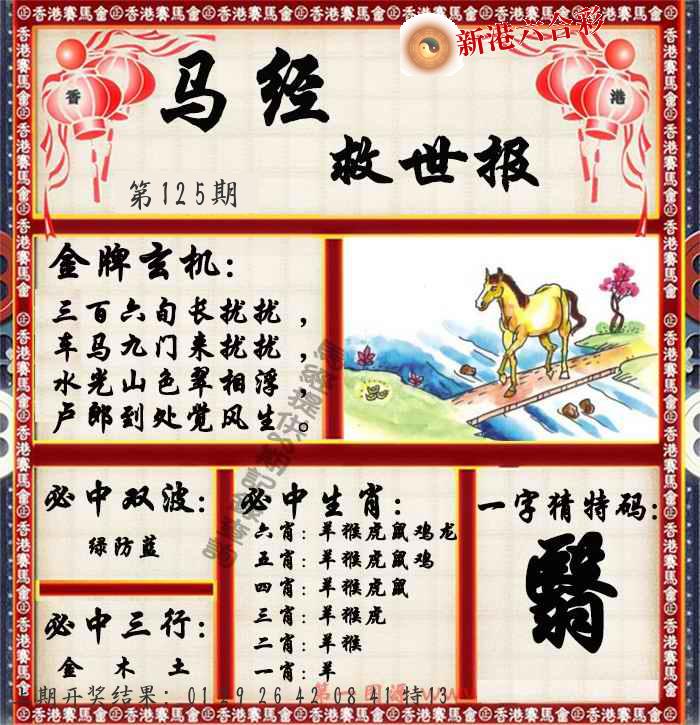 新港六合彩
香港
马经
救世报
第125期
金牌玄机:
三百六旬长扰扰，
车马九门来扰扰，
水光山色翠相浮，
卢郎到处觉风生。
必中双波:
绿防蓝
必中三行:
金木土
必中生肖:
六肖: 羊猴虎鼠鸡龙
五肖: 羊猴虎鼠鸡
四肖: 羊猴虎鼠
三肖: 羊猴虎
二肖: 羊猴
一肖: 羊
一字猜特码:
翳
期开奖结果: 01 9 26 42 08 41特 3
香港赛馬會